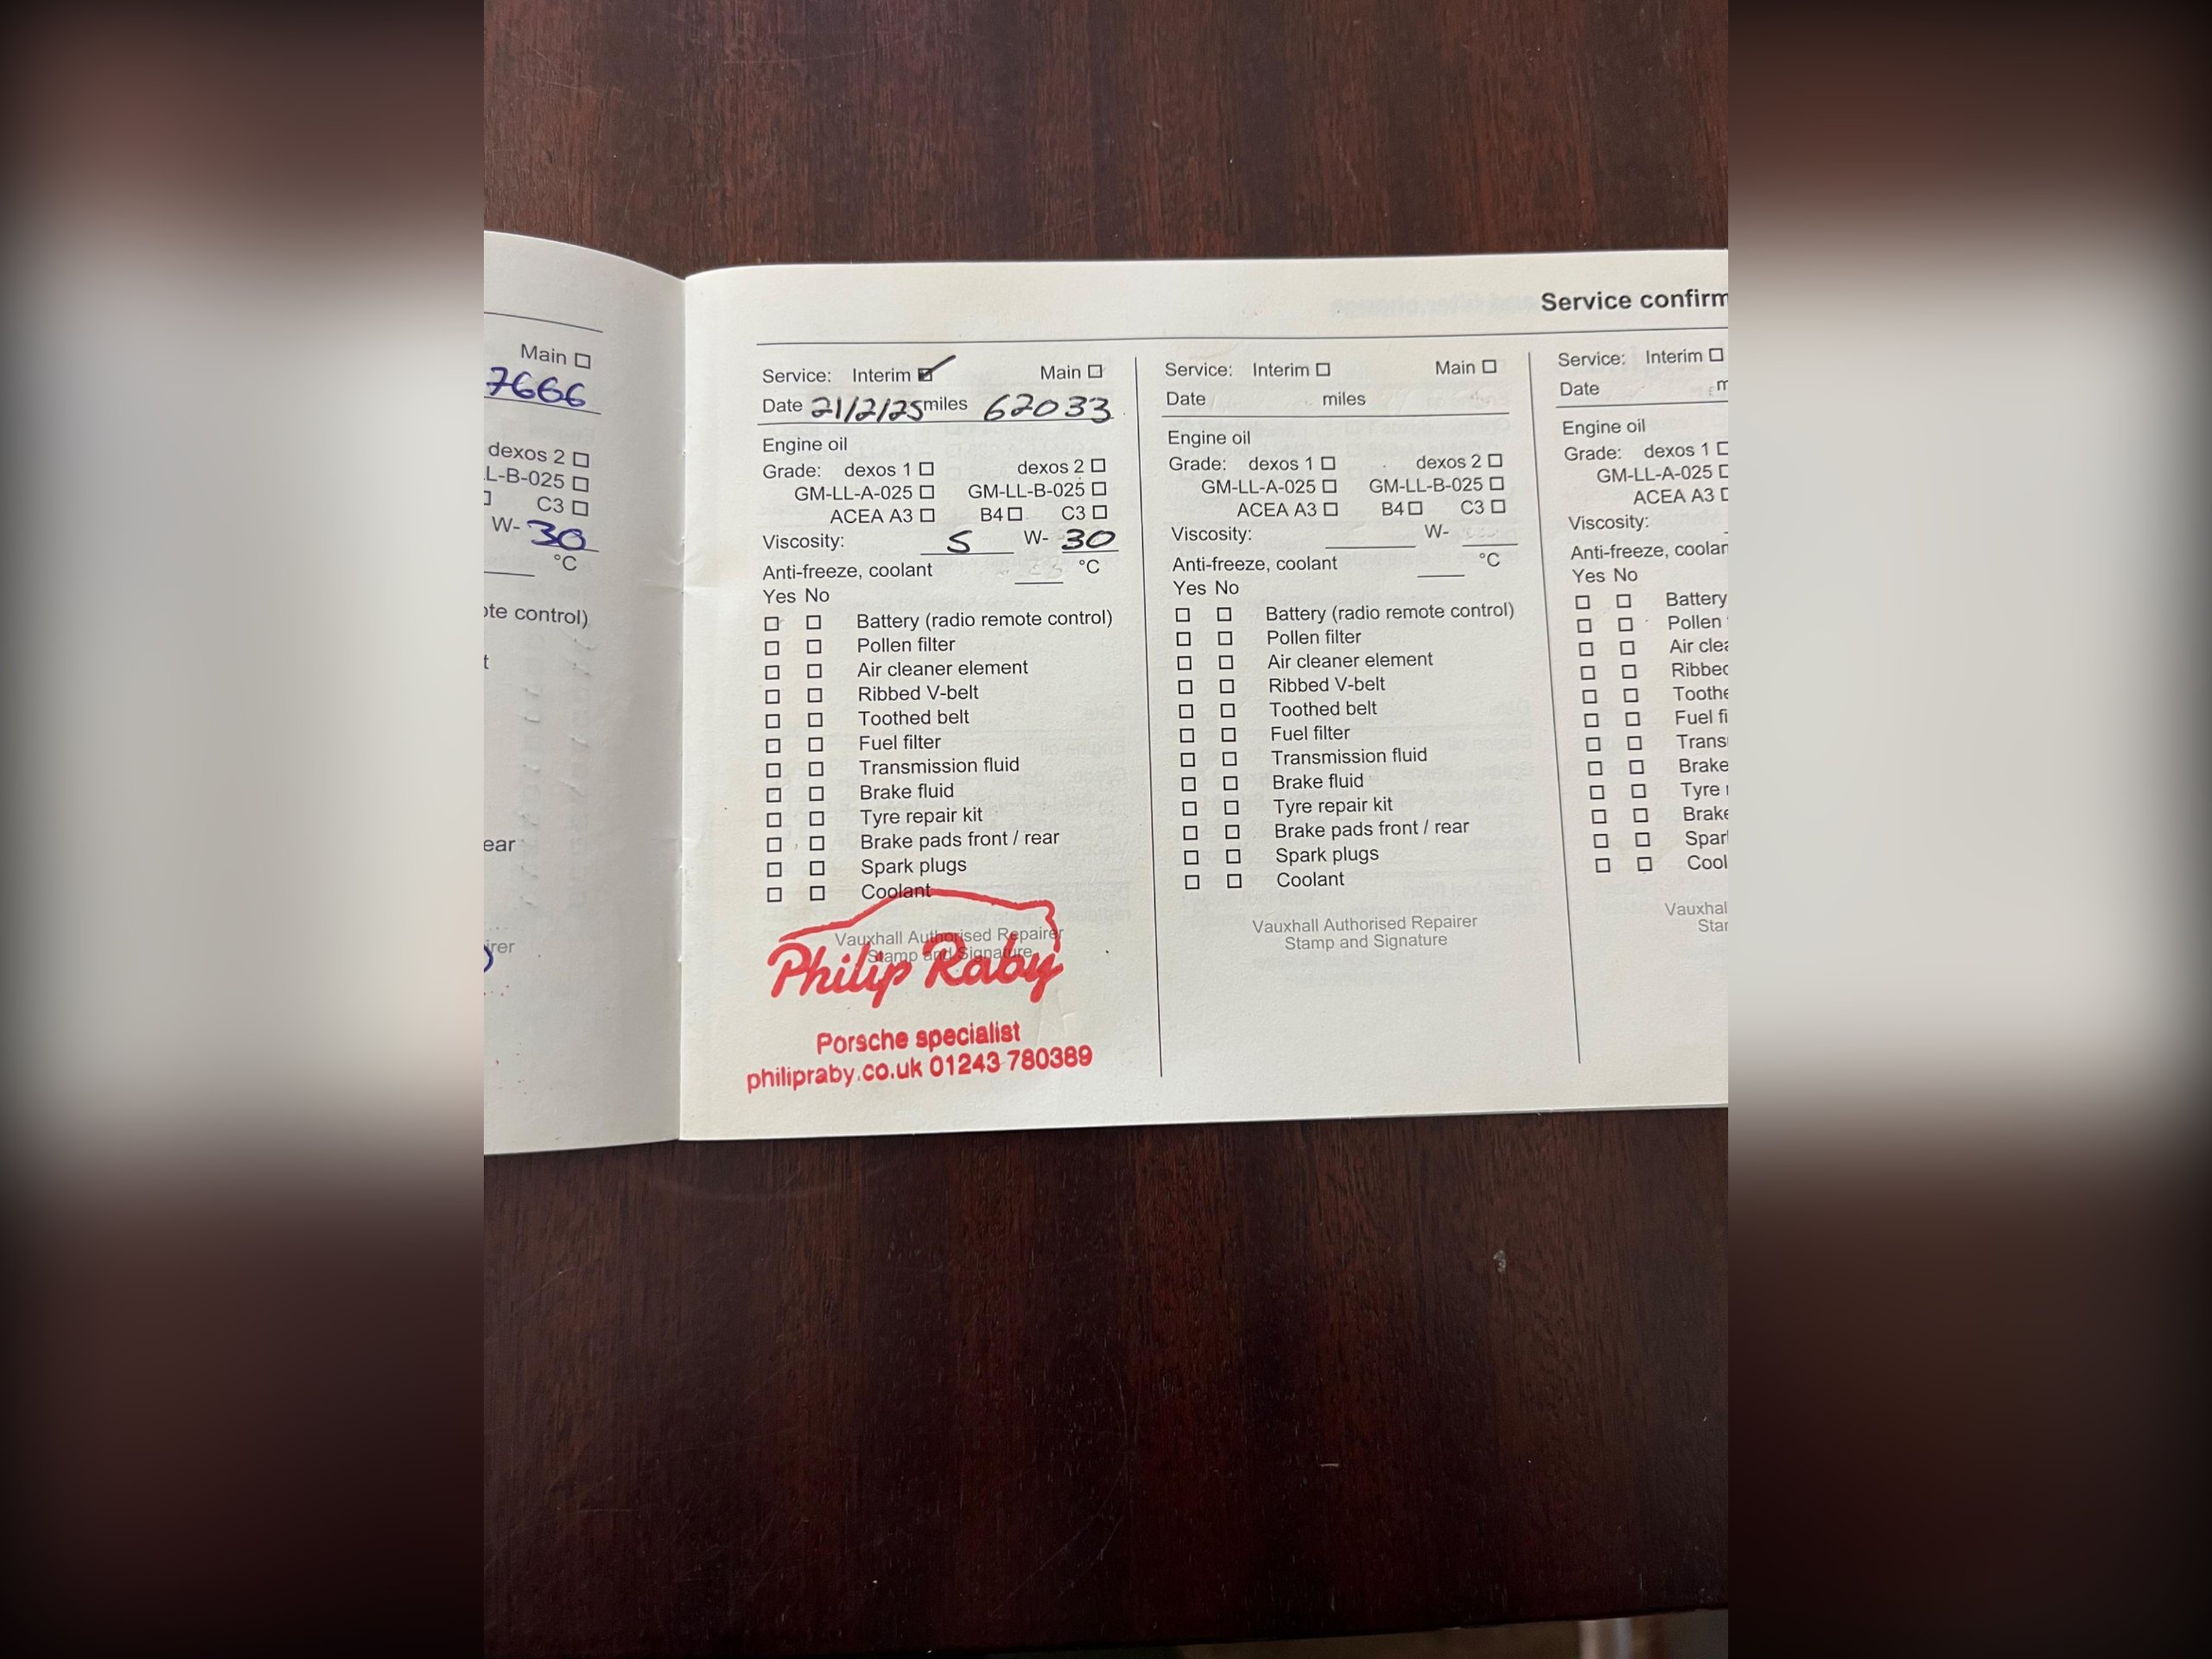 Main ☐
7666
dexos 2 ☐
L-B-025 ☐
C3 ☐
W- 30
°C
ote control)
t
ear
irer
Service confirm
Service: Interim ☑ Main ☐
Date 21/2/25 miles 62033
Engine oil
Grade: dexos 1 ☐ dexos 2 ☐
GM-LL-A-025 ☐ GM-LL-B-025 ☐
ACEA A3 ☐ B4 ☐ C3 ☐
Viscosity: 5 W- 30
Anti-freeze, coolant °C
Yes No
☐ ☐ Battery (radio remote control)
☐ ☐ Pollen filter
☐ ☐ Air cleaner element
☐ ☐ Ribbed V-belt
☐ ☐ Toothed belt
☐ ☐ Fuel filter
☐ ☐ Transmission fluid
☐ ☐ Brake fluid
☐ ☐ Tyre repair kit
☐ ☐ Brake pads front / rear
☐ ☐ Spark plugs
☐ ☐ Coolant
Vauxhall Authorised Repairer
Stamp and Signature
Philip Raby
Porsche specialist
philipraby.co.uk 01243 780389
Service: Interim ☐ Main ☐
Date miles
Engine oil
Grade: dexos 1 ☐ dexos 2 ☐
GM-LL-A-025 ☐ GM-LL-B-025 ☐
ACEA A3 ☐ B4 ☐ C3 ☐
Viscosity: W-
Anti-freeze, coolant °C
Yes No
☐ ☐ Battery (radio remote control)
☐ ☐ Pollen filter
☐ ☐ Air cleaner element
☐ ☐ Ribbed V-belt
☐ ☐ Toothed belt
☐ ☐ Fuel filter
☐ ☐ Transmission fluid
☐ ☐ Brake fluid
☐ ☐ Tyre repair kit
☐ ☐ Brake pads front / rear
☐ ☐ Spark plugs
☐ ☐ Coolant
Vauxhall Authorised Repairer
Stamp and Signature
Service: Interim ☐
Date m
Engine oil
Grade: dexos 1 ☐
GM-LL-A-025 ☐
ACEA A3 ☐
Viscosity:
Anti-freeze, coolan
Yes No
☐ ☐ Battery
☐ ☐ Pollen
☐ ☐ Air clea
☐ ☐ Ribbed
☐ ☐ Toothe
☐ ☐ Fuel fi
☐ ☐ Trans
☐ ☐ Brake
☐ ☐ Tyre
☐ ☐ Brake
☐ ☐ Spar
☐ ☐ Cool
Vauxhal
Star